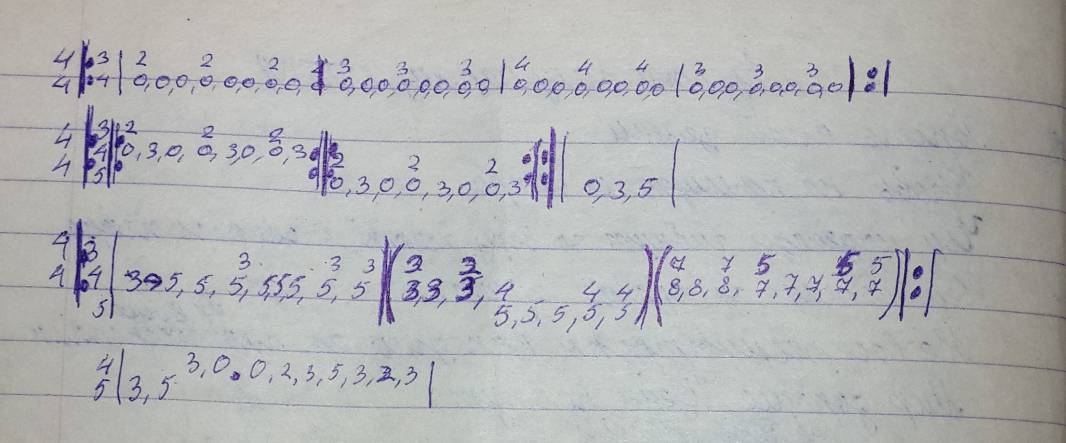 4 3 | 2 2 2 2 | 3 3 3 | 4 4 4 | 3 3 3
4 4 | 0,0,0,0,0,0,0,0 | 0,0,0,0,0,0,0 | 0,0,0,0,0,0,0 | 0,0,0,0,0,0,0 | :|
4 3 2 2 2
4 4 0,3,0, 0,3,0, 0,3
5 2 2 2
0,3,0,0,3,0,0,3 0,3,5
4 3 3 3 3 2 2 7 7 5 5 5
4 4 3→5, 5, 5, 5,5,5, 5, 5 3,3,3, 4 4 4 8,8,8, 7,7,7,7,7
5 5,5,5,5,5
4 3,0.0,2,3,5,3,2,3
5 3,5